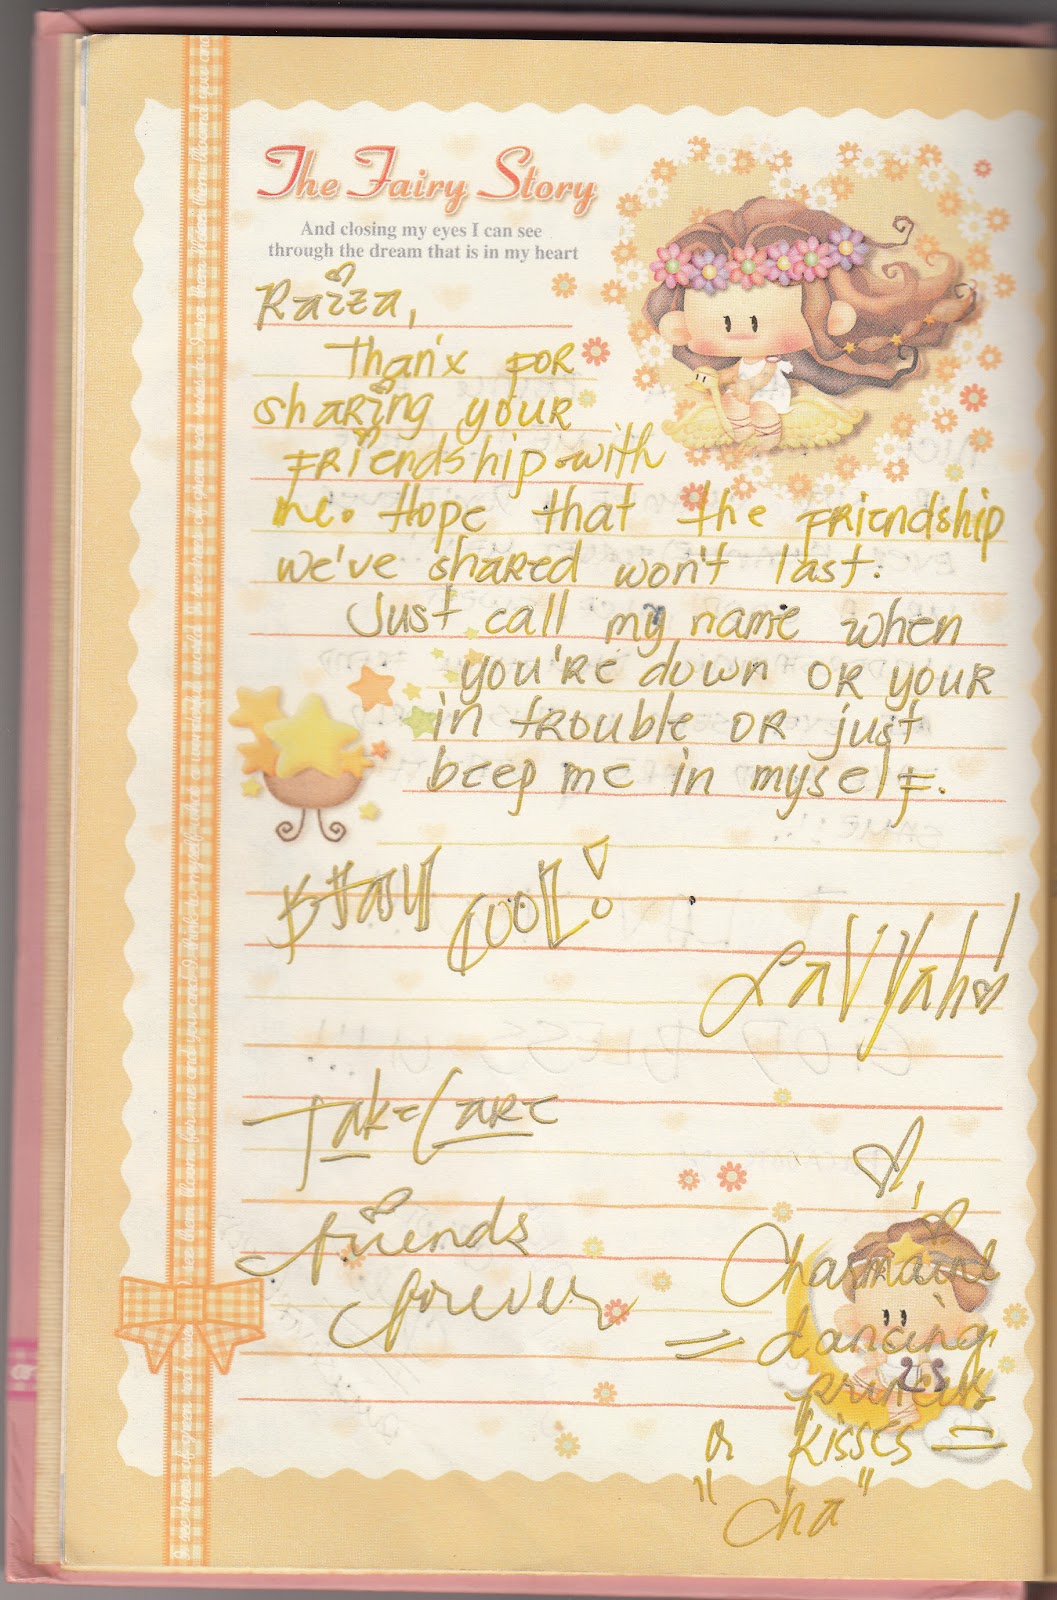 The Fairy Story
And closing my eyes I can see
through the dream that is in my heart
Raiza,
Than'x for
sharing your
friendship with
me. Hope that the friendship
we've shared won't last.
Just call my name when
you're down or your
in trouble or just
beep me in myself.
Stay Cool!
LavYah!
Take Care
friends
forever
Charmaine
= dancing
princess
or kisses =
"Cha"
25